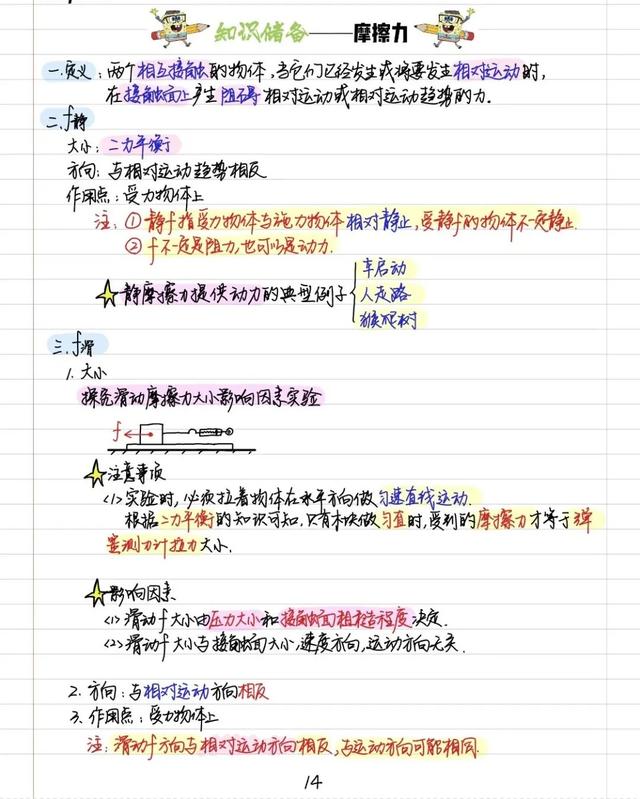 知识储备——摩擦力
一.定义：两个相互接触的物体，当它们已经发生或将要发生相对运动时，
在接触面上产生阻碍相对运动或相对运动趋势的力.
二.f静
大小：二力平衡
方向：与相对运动趋势相反
作用点：受力物体上
注：①静f指受力物体与施力物体相对静止，受静f的物体不一定静止.
②f不一定是阻力，也可以是动力.
车启动
静摩擦力提供动力的典型例子
人走路
猴爬树
三.f滑
1.大小
探究滑动摩擦力大小影响因素实验
f
注意事项
<1>实验时，必须拉着物体在水平方向做匀速直线运动.
根据二力平衡的知识可知，只有木块做匀直时，受到的摩擦力才等于弹
簧测力计拉力大小.
影响因素
<1>滑动f大小由压力大小和接触面粗糙程度决定.
<2>滑动f大小与接触面大小，速度方向，运动方向无关.
2.方向：与相对运动方向相反
3.作用点：受力物体上
注：滑动f方向与相对运动方向相反，与运动方向可能相同.
14